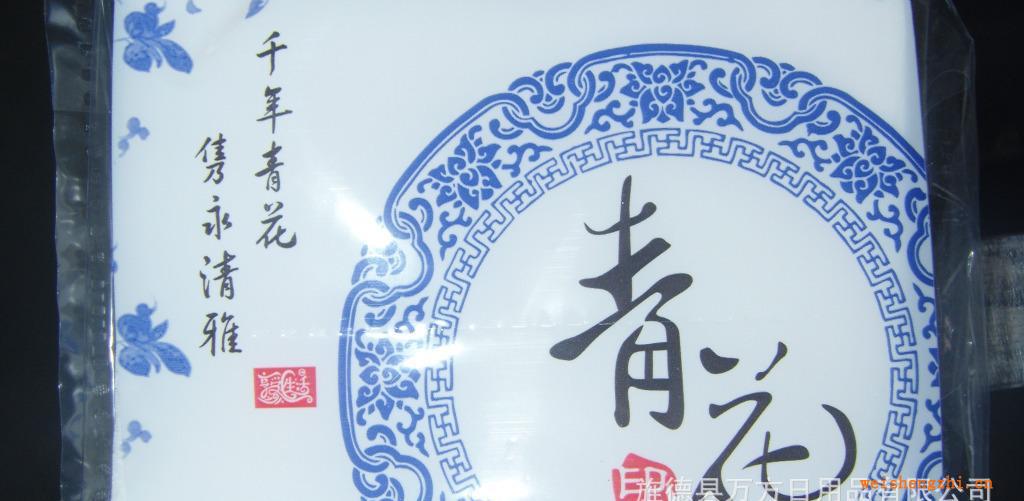 千年青花
隽永清雅
享受生活
青花
印
旌德县万方日用品有限公司
weishengzhi.cn